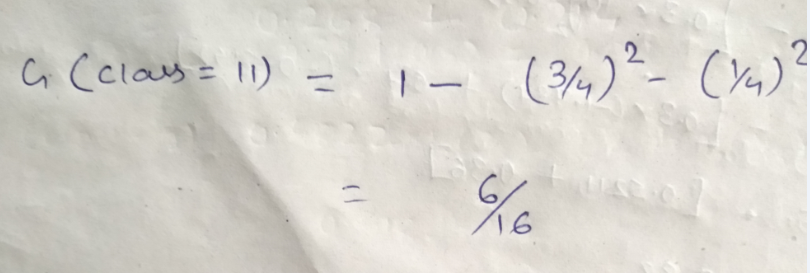 G (class = 11) = 1 - (3/4)² - (1/4)²
= 6/16